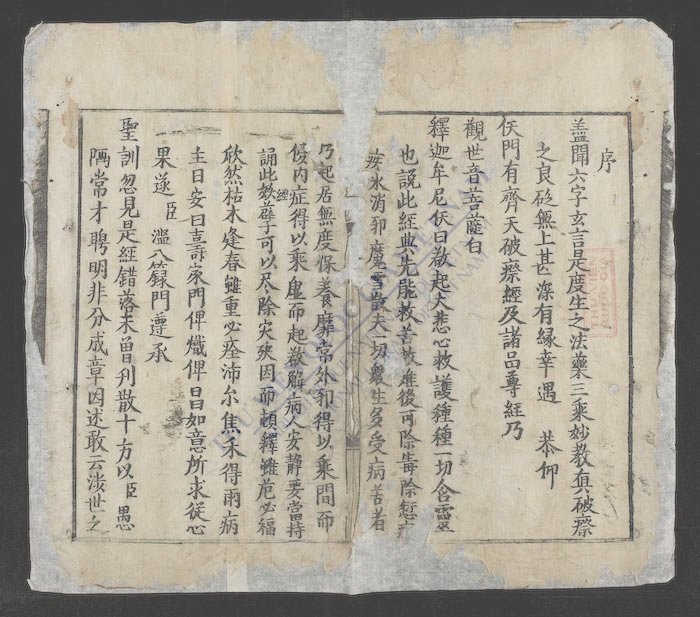 序
蓋聞六字玄言是度生之法藥三乘妙教真破瘵
之良砭無上甚深有緣幸遇 恭仰
仸門有齊天破瘵經及諸品尊經乃
觀世音菩薩白
釋迦牟尼仸曰欲起大悲心救護種種一切含靈
也說此經典先能救善救难後可除毒除愆
氷消邪魔雪散夫一切眾生多受病苦者
乃起居無度保養靡常外邪得以乘間而
侵内症得以乘虛而起欲解病人安静要當持
誦此妖孽經可以尽除灾殃因而頓釋雖危必福
欣然枯木逢春雖重必痊沛尔焦禾得雨病
主日安曰壽家門俾熾俾昌如意所求從心
果遂臣 濫八籙門遵承
聖訓忽見是經錯落未曾刋散十方以臣愚
隅常才聘明非分成章因述敢云淡世之